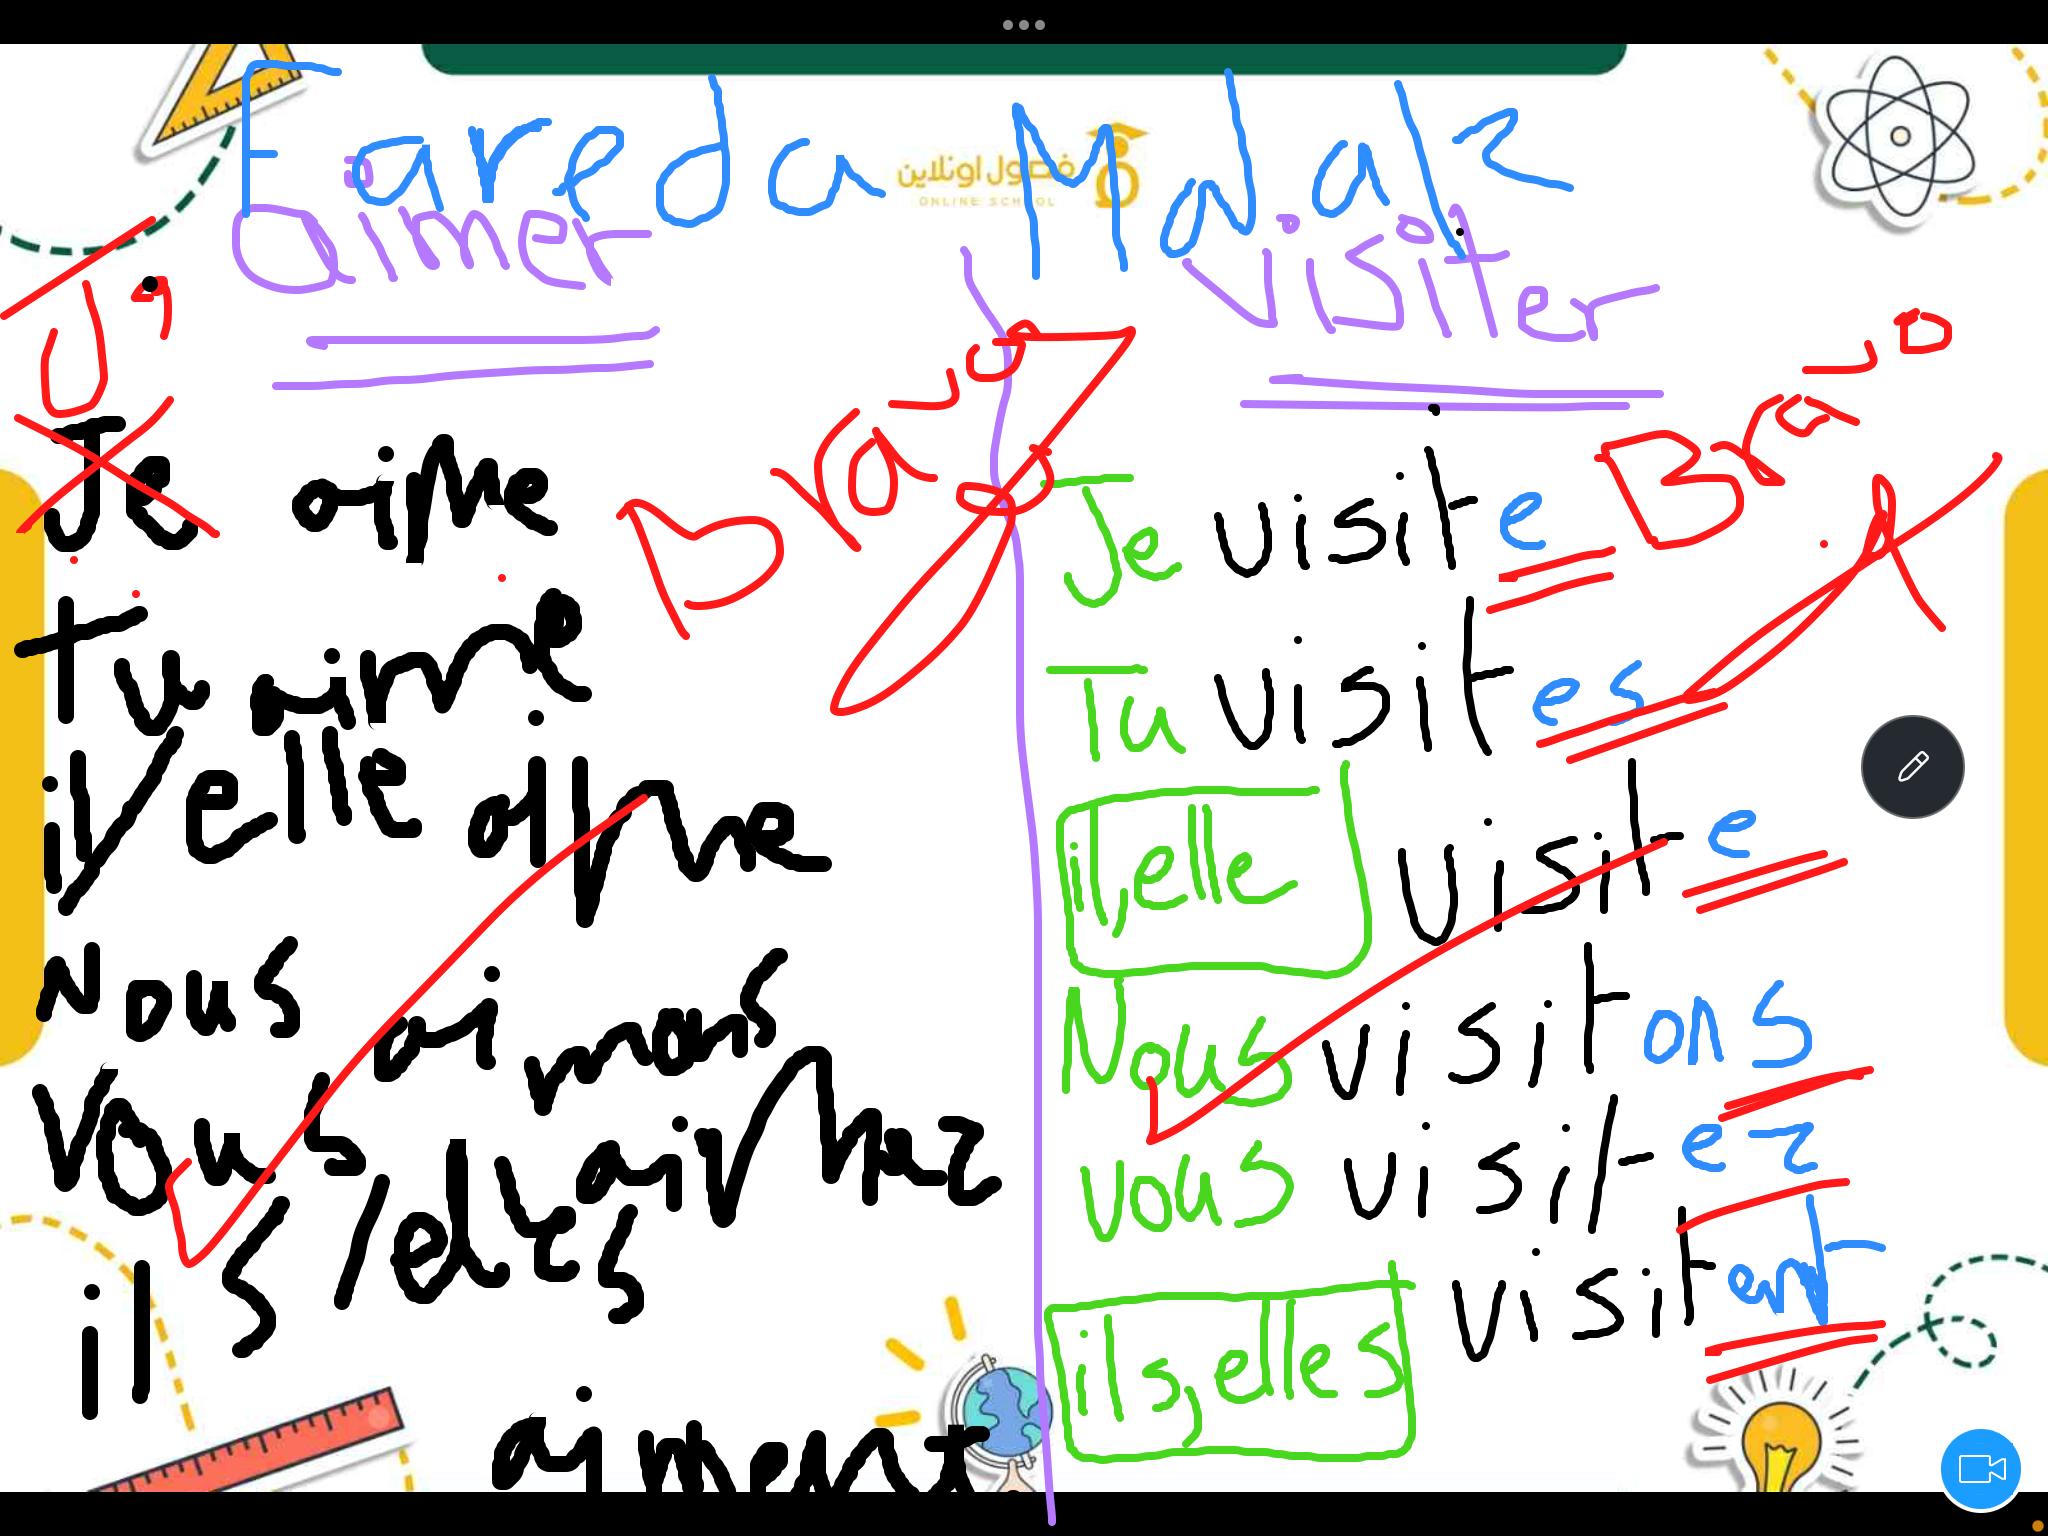 Fareda Malak 2
فصول اونلاين
ONLINE SCHOOL
aimer
J'
Je aime
Tu aime
il/elle aime
Nous aimons
Vous aimez
ils/elles
aiment
Bravo
visiter
Je visite
Tu visites
il,elle visite
Nous visitons
vous visitez
ils,elles visitent
Bravo